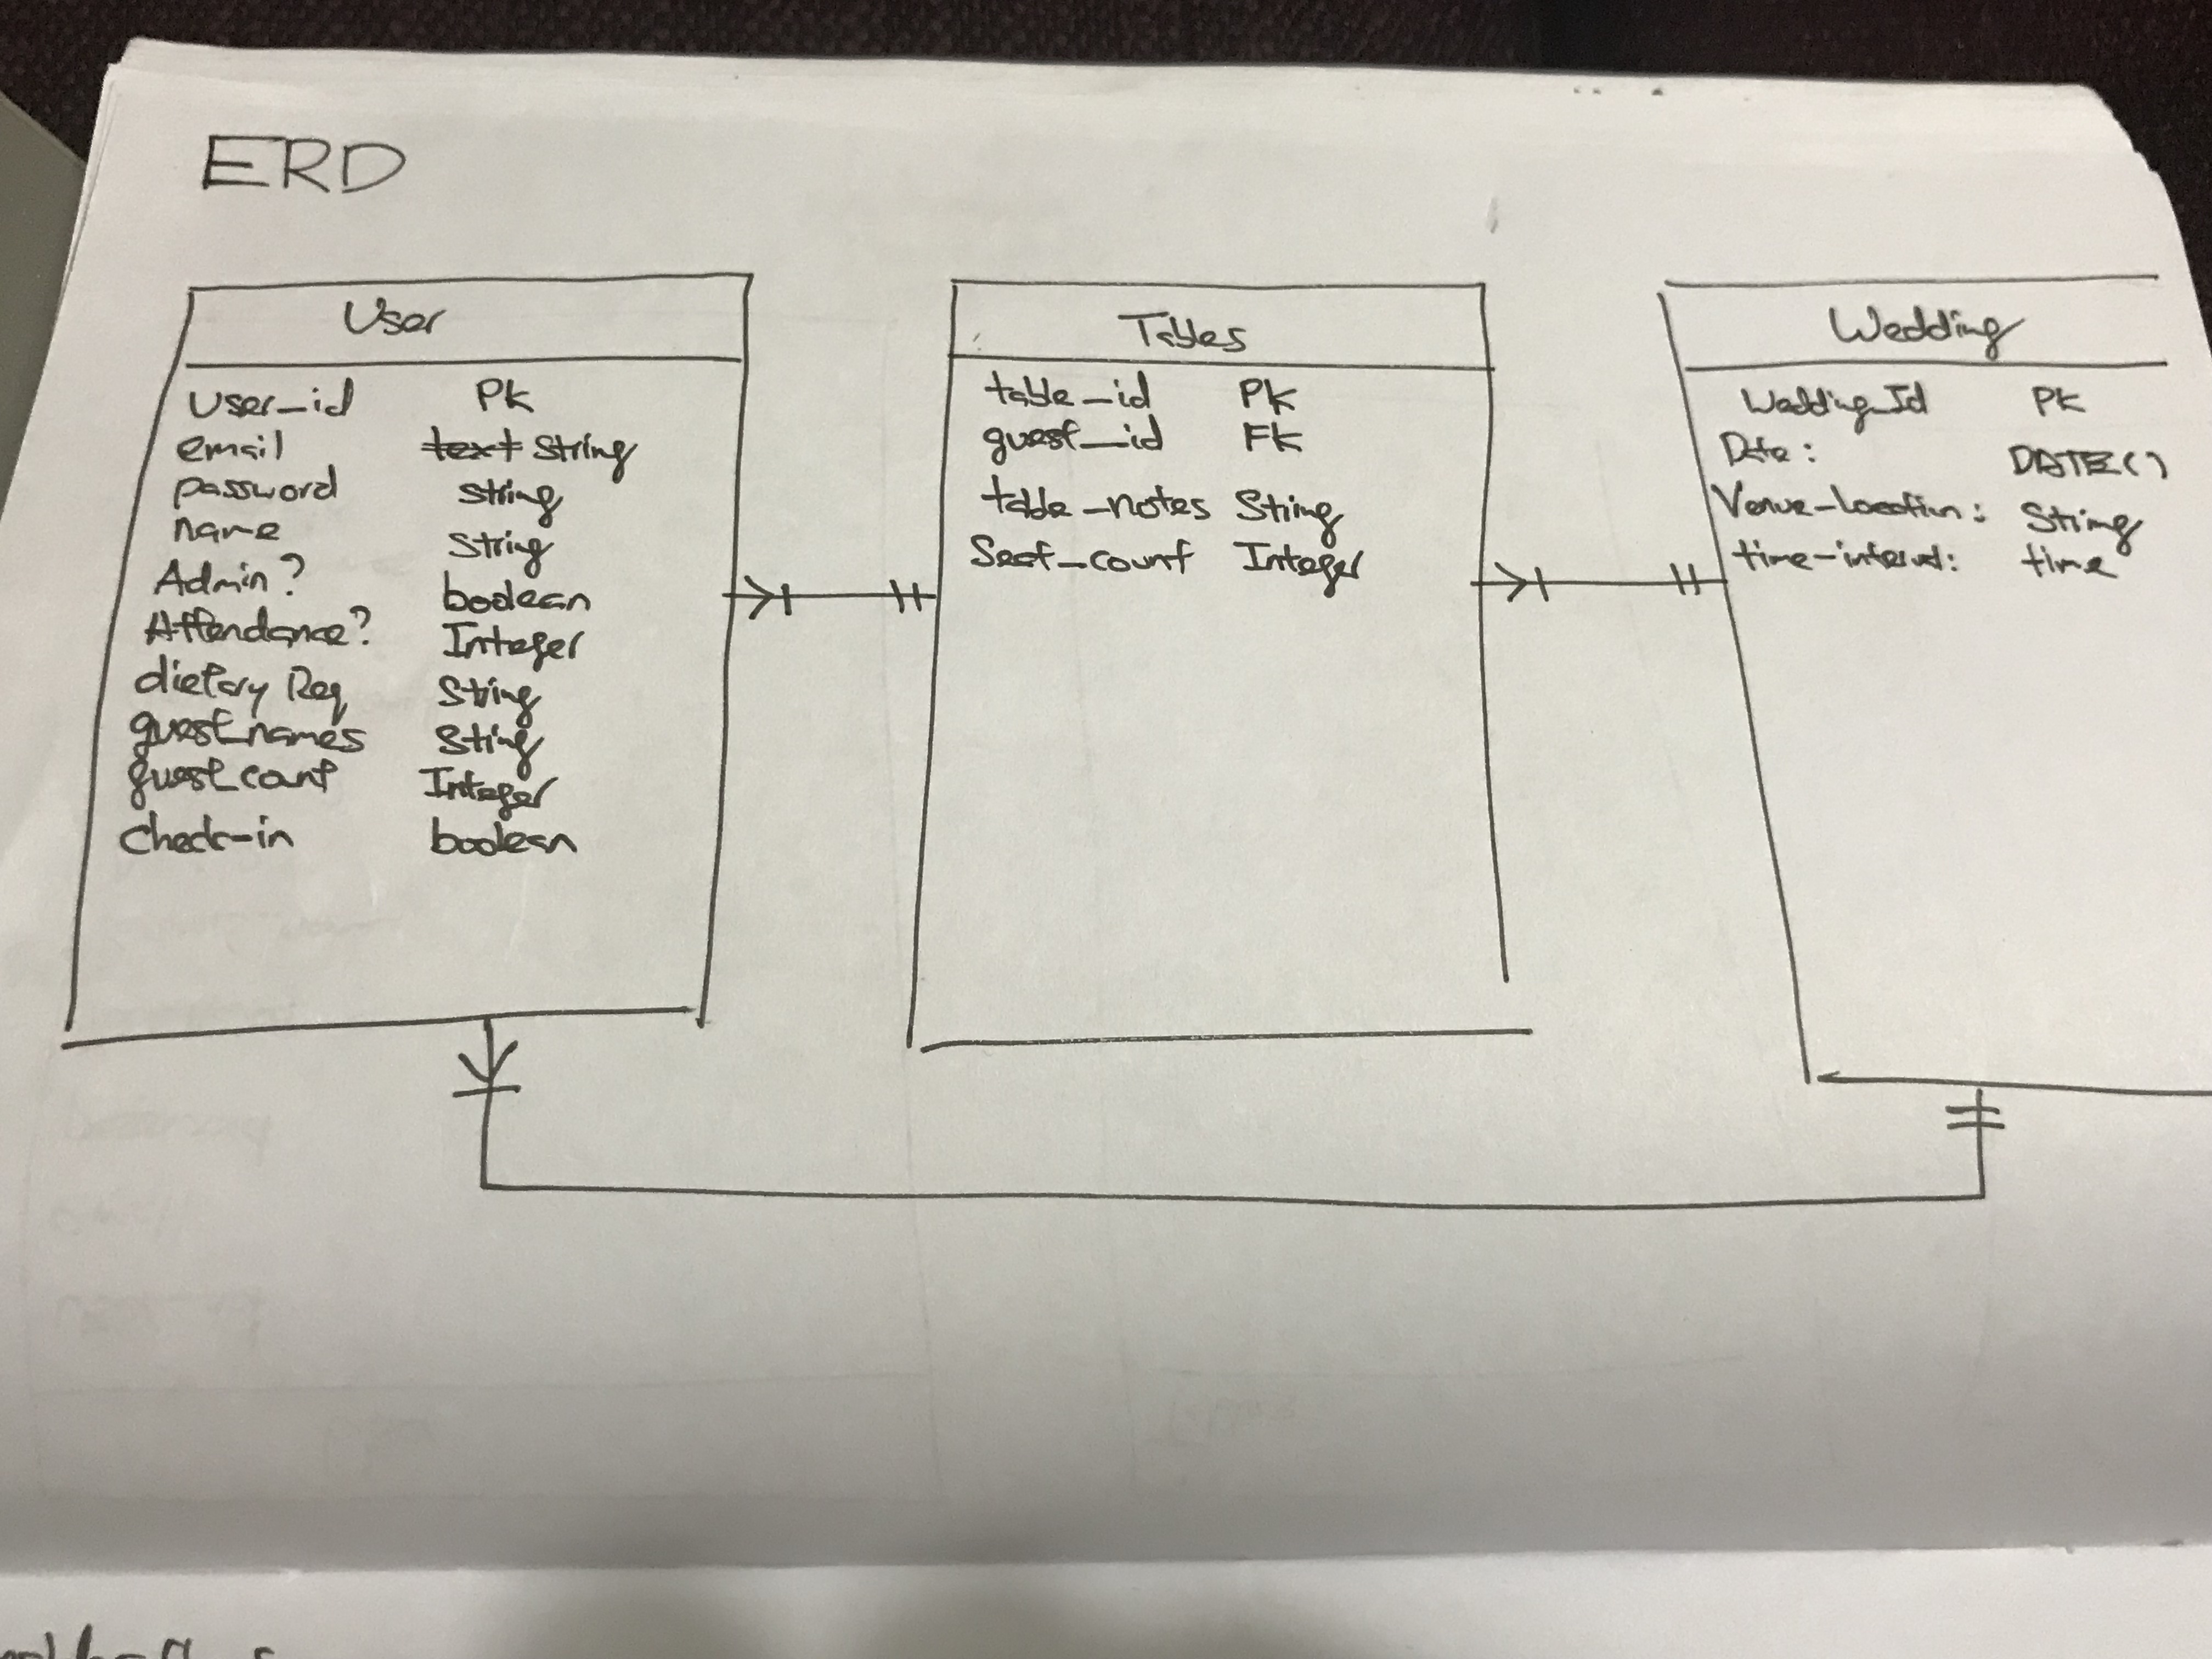 ERD
User
User_id PK
email text String
password String
name String
Admin? boolean
Attendance? Integer
dietary Req String
guest_names Sting
guest_count Integer
Check-in boolean
Tables
table_id PK
guest_id FK
table_notes String
Seat_count Integer
Wedding
Wedding_Id PK
Date: DATE()
Venue-Location: String
time-interval: time